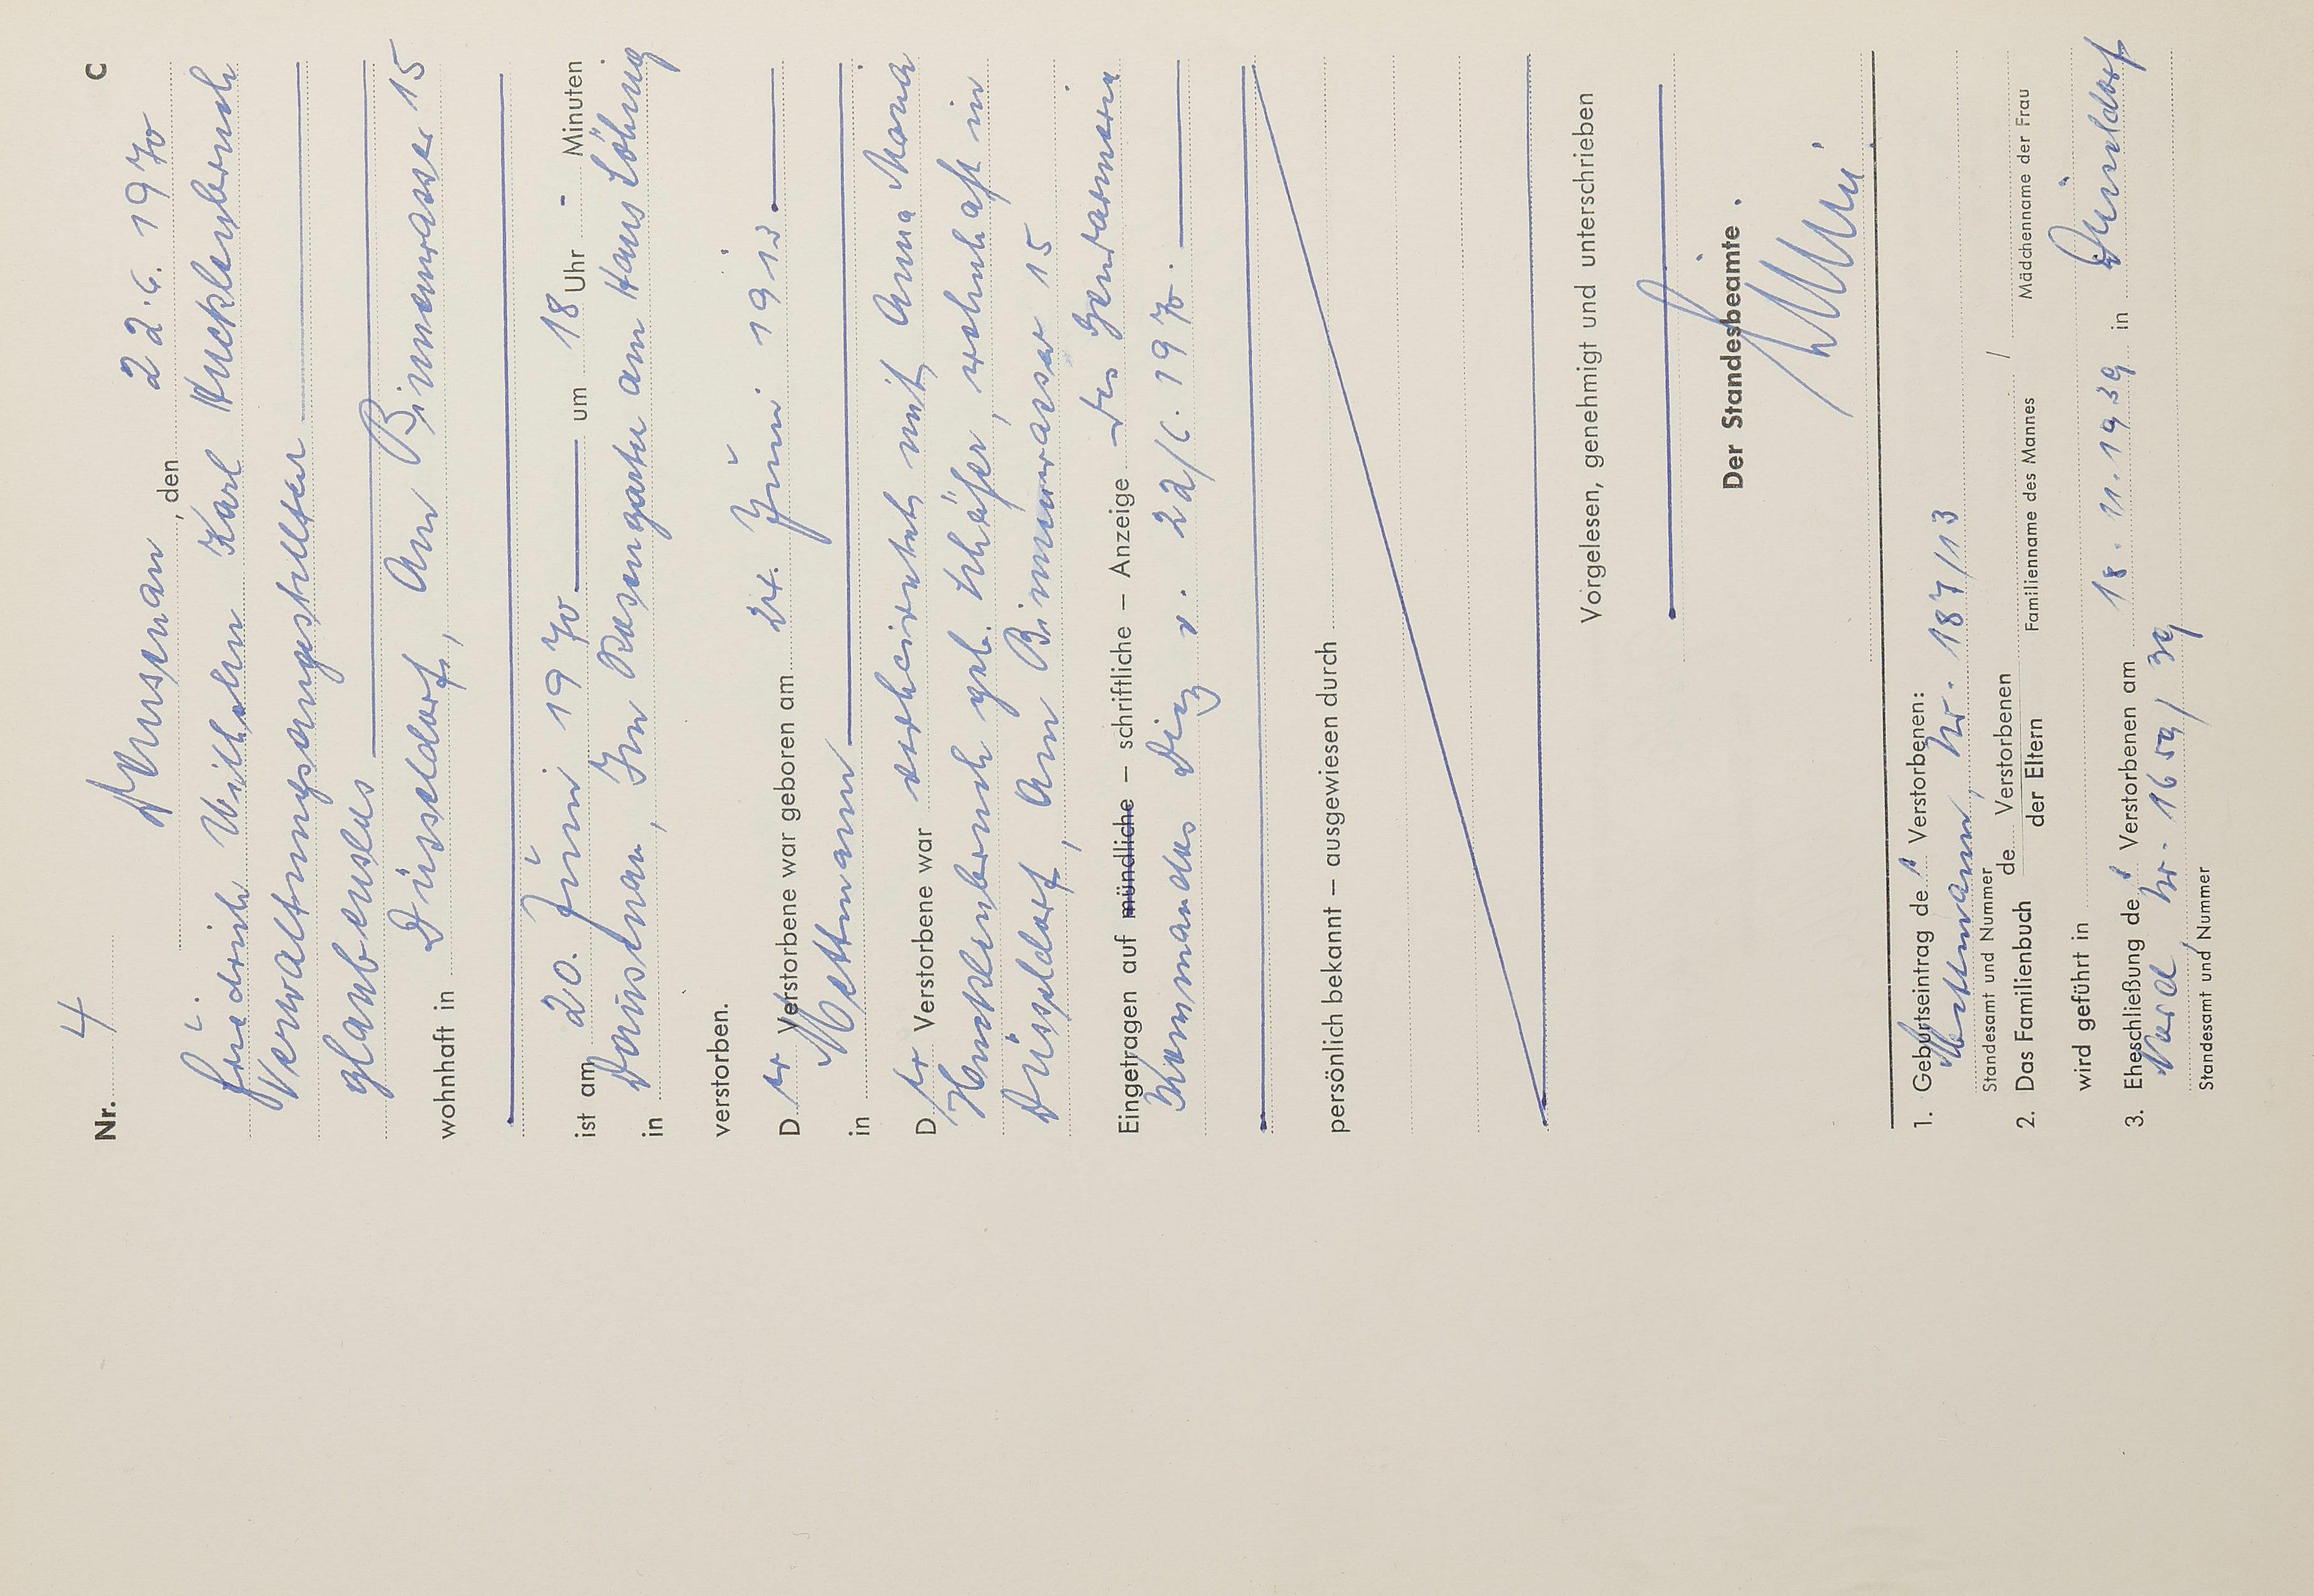 Nr. 4 C
Dausenau, den 22.6. 1970
Friedrich Wilhelm Karl Hucklenbruch
Verwaltungsangestellter
glaubenslos
wohnhaft in Düsseldorf, Am Binnenwasser 15
ist am 20. Juni 1970 um 18 Uhr - Minuten
in Dausenau, Im Rosengarten am Haus Löhning
verstorben.
Der Verstorbene war geboren am 24. Juni 1913.
in Mettmann
Der Verstorbene war verheiratet mit Anna Maria
Hucklenbruch geb. Schäfer, wohnhaft in
Düsseldorf, Am Binnenwasser 15
Eingetragen auf mündliche – schriftliche – Anzeige des Gendarmerie
Kommandos Diez v. 22/6. 1970.
persönlich bekannt – ausgewiesen durch
Vorgelesen, genehmigt und unterschrieben
Der Standesbeamte
1. Geburtseintrag des Verstorbenen:
Mettmann, Nr. 187/13
Standesamt und Nummer
2. Das Familienbuch de Verstorbenen / der Eltern
Familienname des Mannes / Mädchenname der Frau
wird geführt in
3. Eheschließung des Verstorbenen am 18. 11. 1939 in Düsseldorf
Nord Nr. 1659/39
Standesamt und Nummer